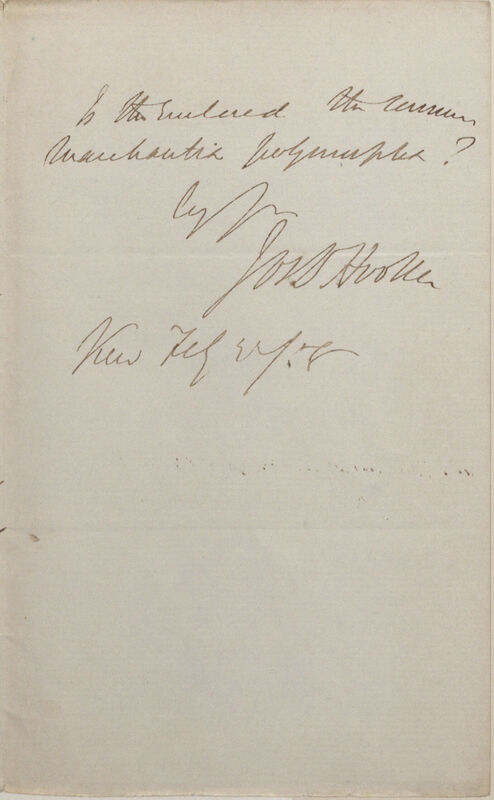 Is the Enclosed the common
Marchantia polymorpha?
Jos D Hooker
Kew Feb